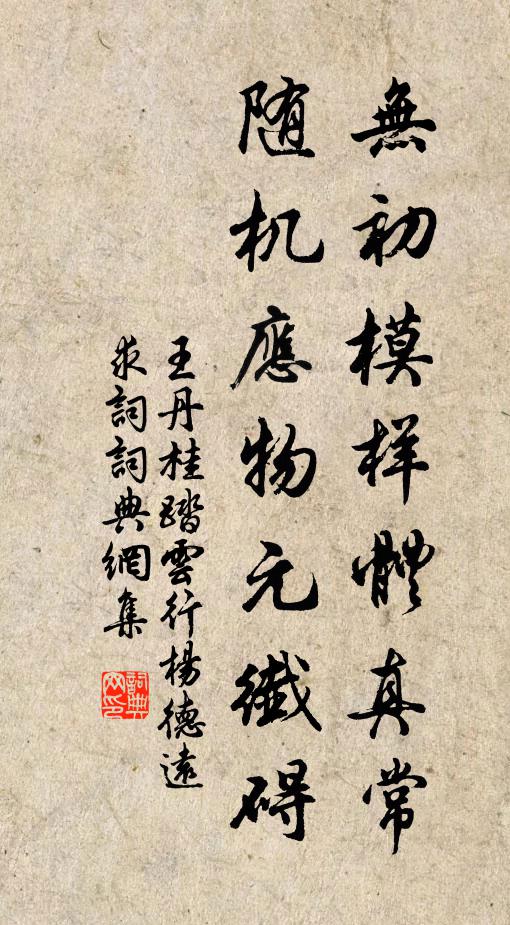 無初模样體真常
随机應物元纖碍
王丹桂踏雲行楊德遠
求詞詞典網集
詞典網印